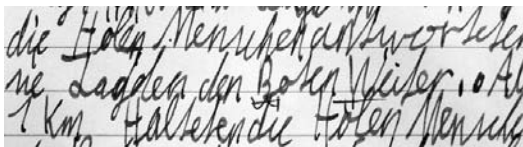 die Hölen Menschen antworteten
ne Lagden den Boten Weiter. Ab
1 Km Haltesen die Hölen Mensch